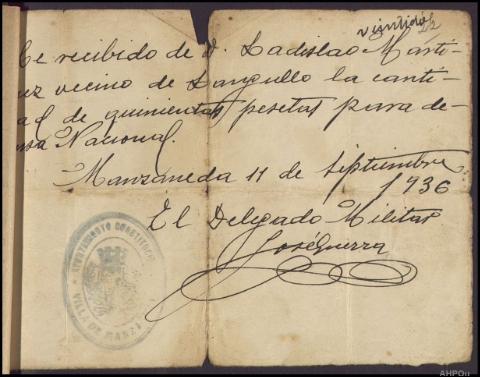 veintidós 22
He recibido de D. Ladislao Martí-
nez vecino de Langullo la canti-
ad de quinientas pesetas para de-
nsa Nacional.
Manzaneda 11 de Septiembre
1936
El Delegado Militar
José Guerra
AYUNTAMIENTO CONSTITUCIO
VILLA DE MANZA
AHPOu